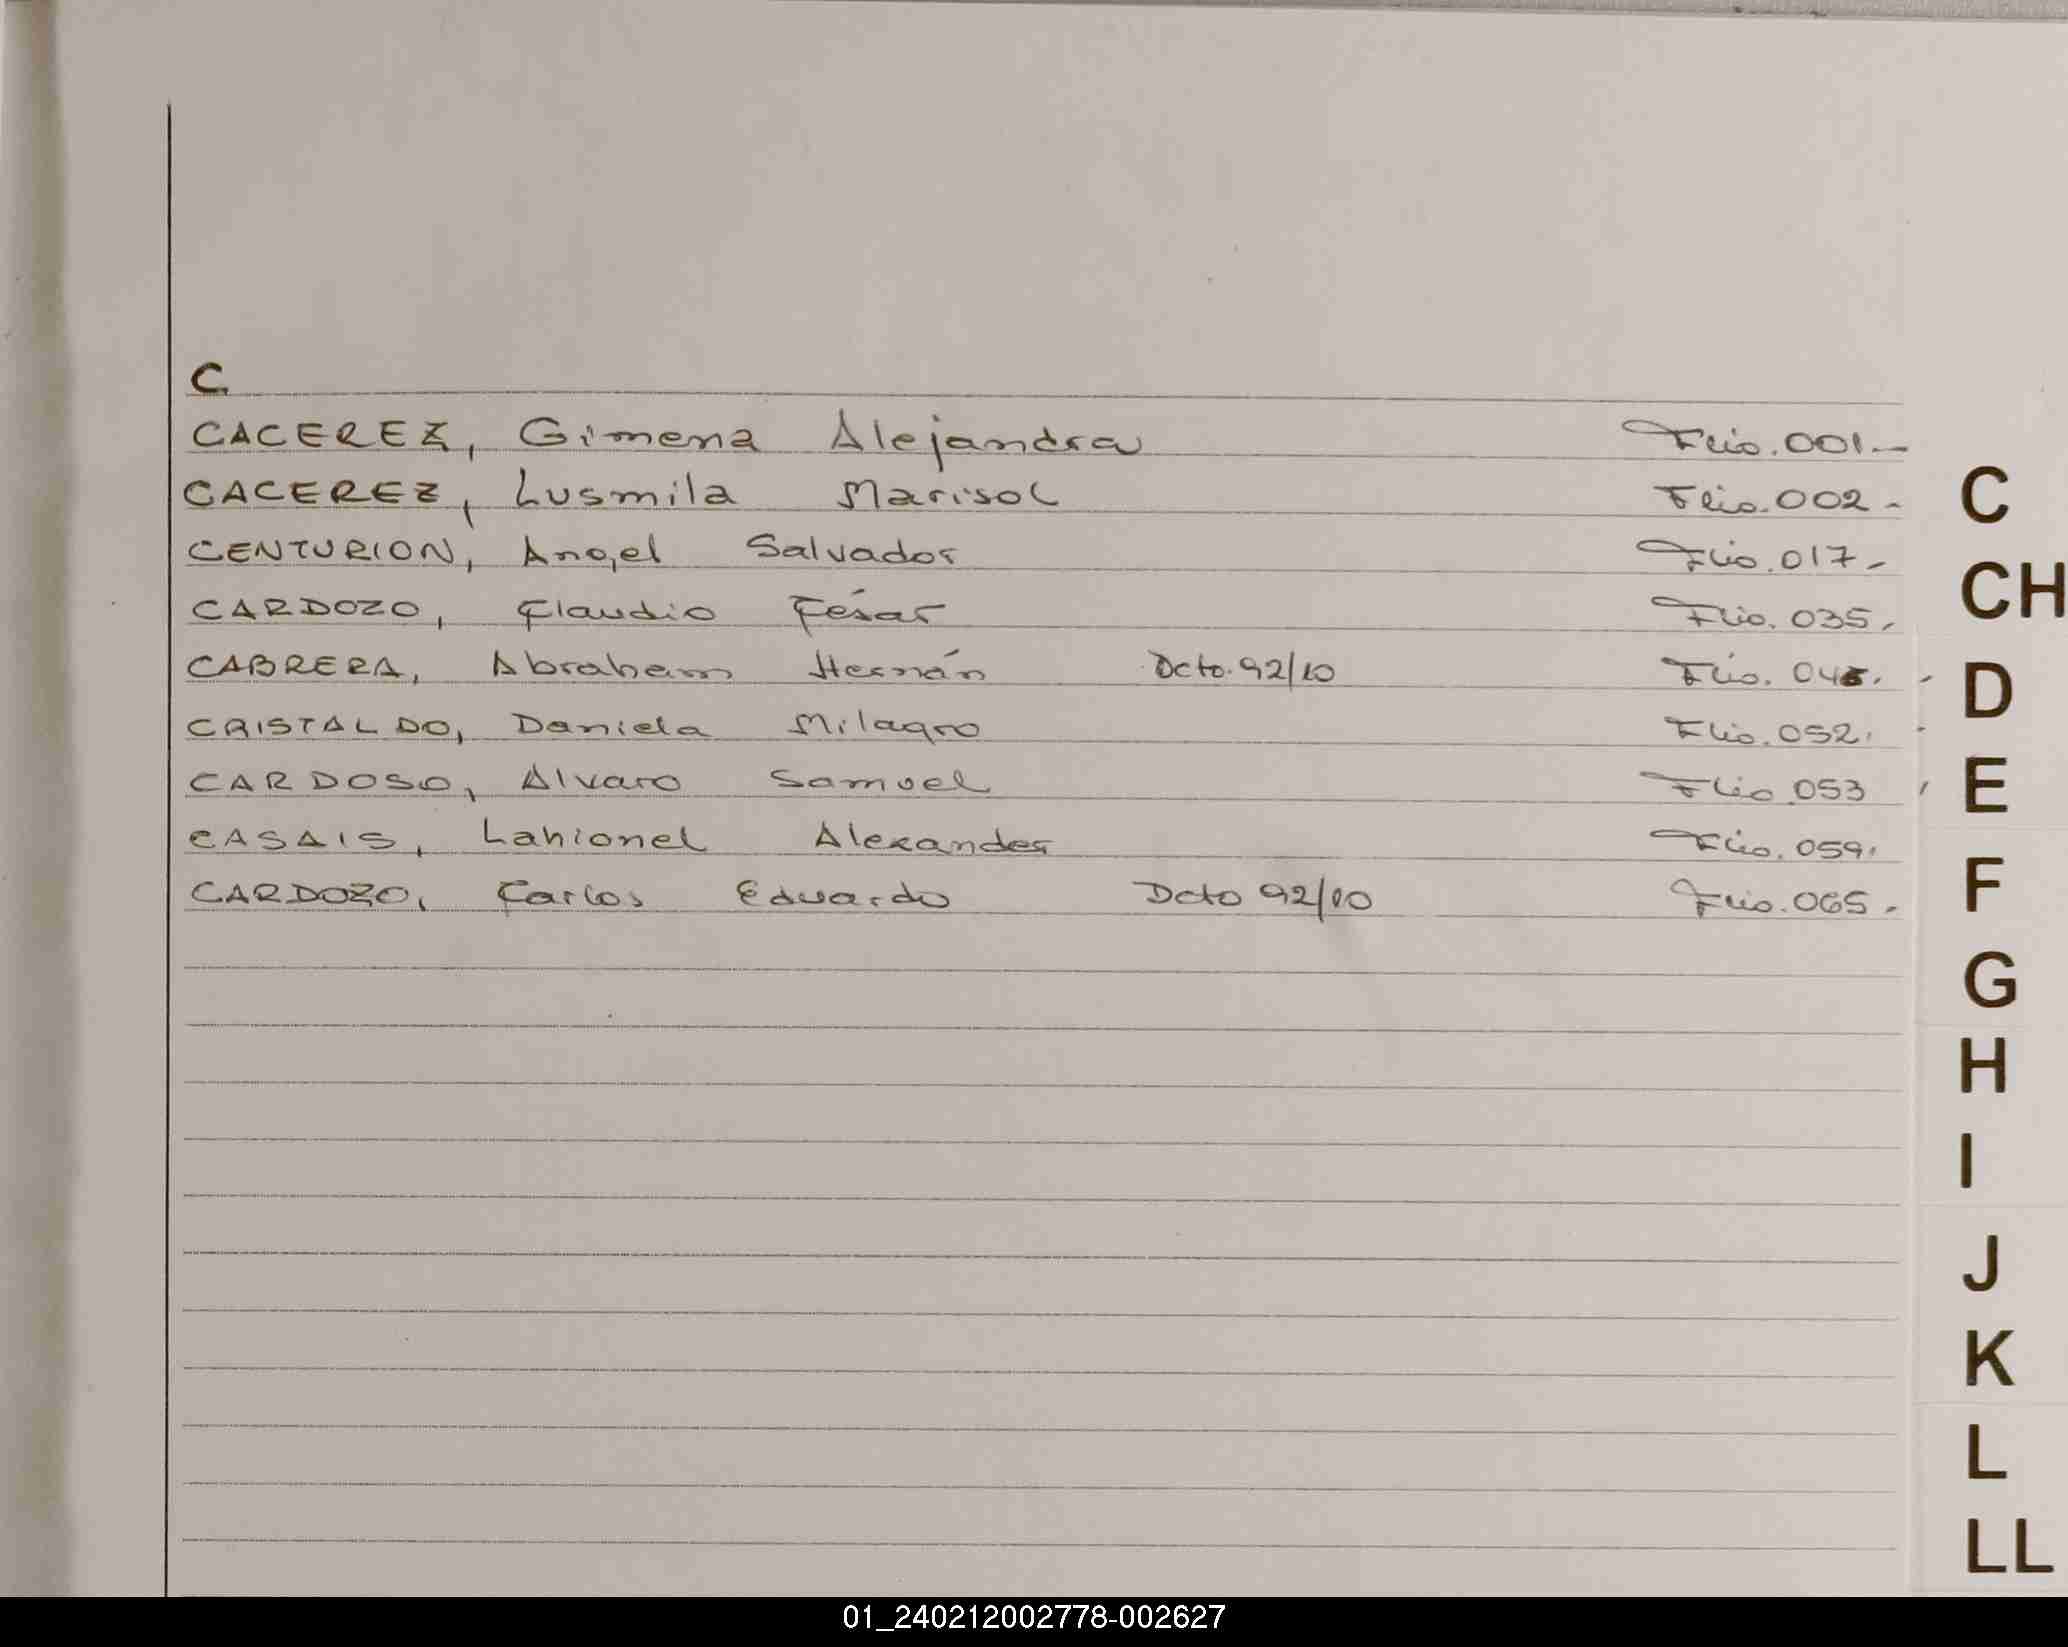 C.
CACEREZ, Gimena Alejandra Flio. 001.-
CACEREZ, Lusmila Marisol Flio. 002.-
CENTURION, Angel Salvador Flio. 017.-
CARDOZO, Claudio César Flio. 035.
CABRERA, Abraham Hernán Dcto. 92/10 Flio.
CRISTALDO, Daniela Milagro Flio. 052.
CARDOSO, Alvaro Samuel Flio 053
CASAIS, Lahionel Alexander Flio. 059.
CARDOZO, Carlos Eduardo Dcto 92/10 Flio. 065.
C
CH
D
E
F
G
H
I
J
K
L
LL
01_240212002778-002627